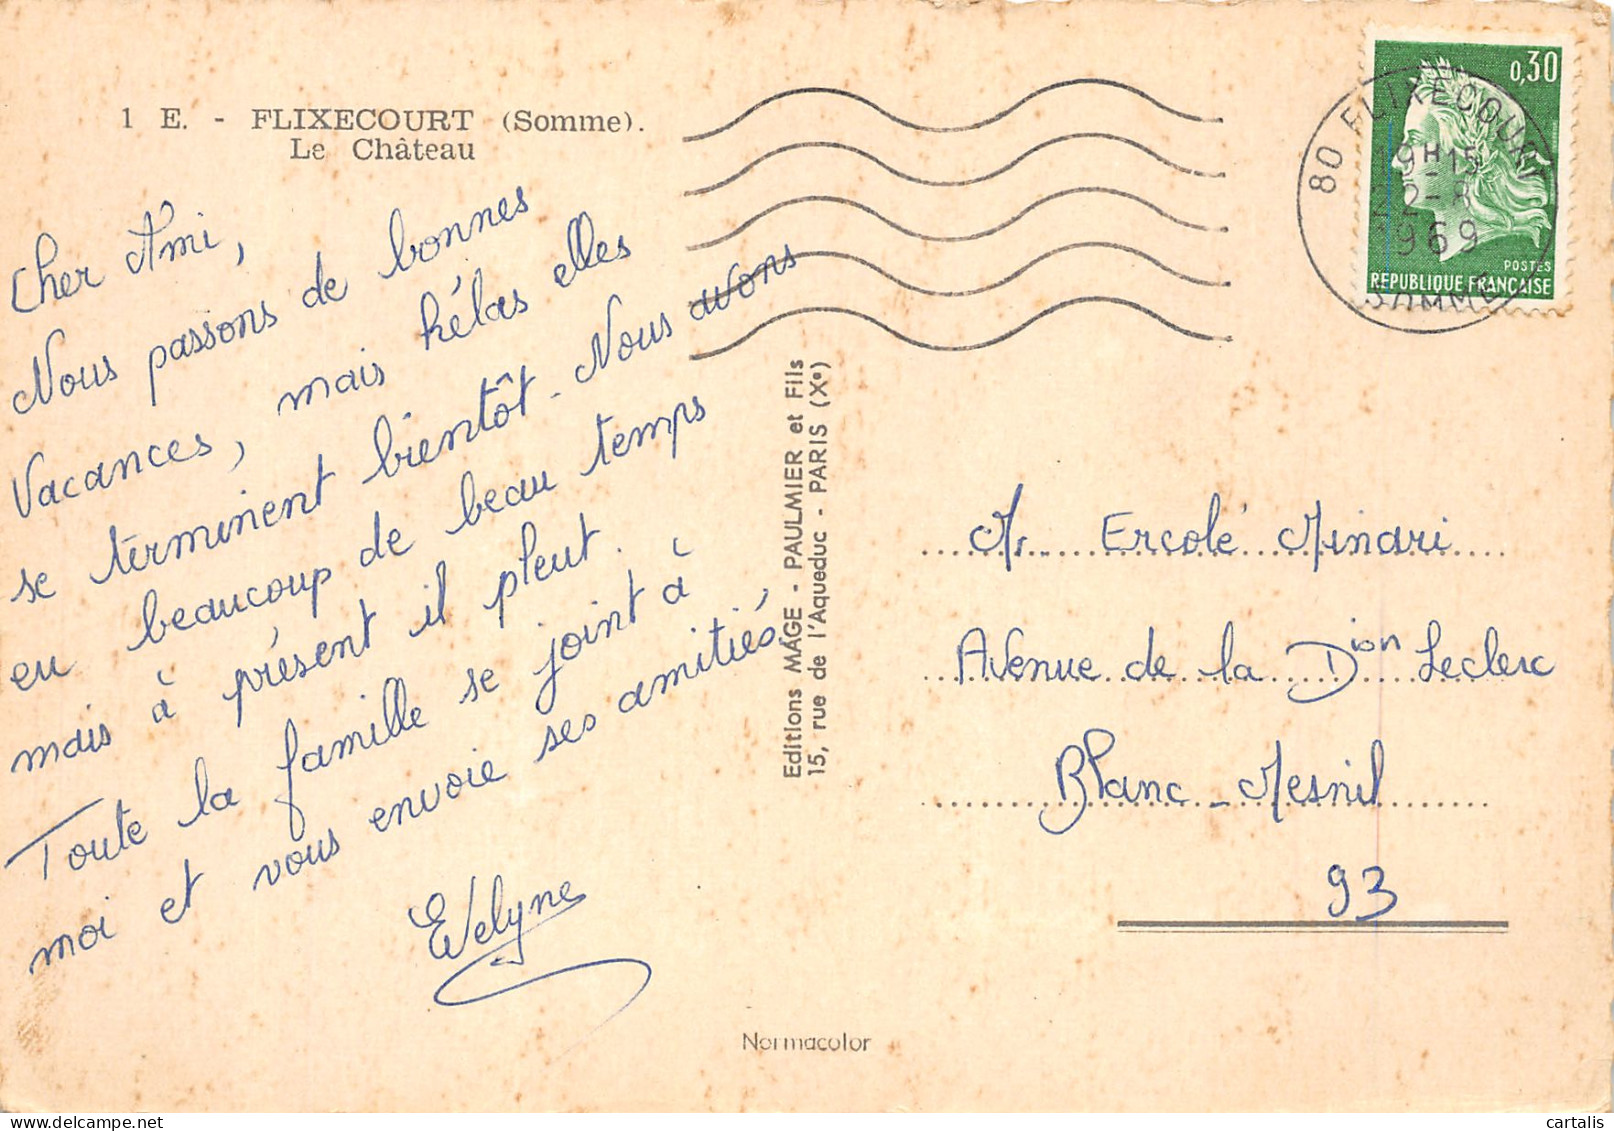 1 E. - FLIXECOURT (Somme).
Le Château
Cher Ami,
Nous passons de bonnes
Vacances, mais hélas elles
se terminent bientôt. Nous avons
eu beaucoup de beau temps
mais à présent il pleut.
Toute la famille se joint à
moi et vous envoie ses amitiés,
Evelyne
Editions MAGE - PAULMIER et Fils
15, rue de l'Aqueduc - PARIS (Xe)
Normacolor
0,30
POSTES
REPUBLIQUE FRANÇAISE
80 FLIXECOURT
19H15
22-8
1969
SOMME
M. Ercolé Minari
Avenue de la Dion Leclerc
Blanc-Mesnil
93
cartalis